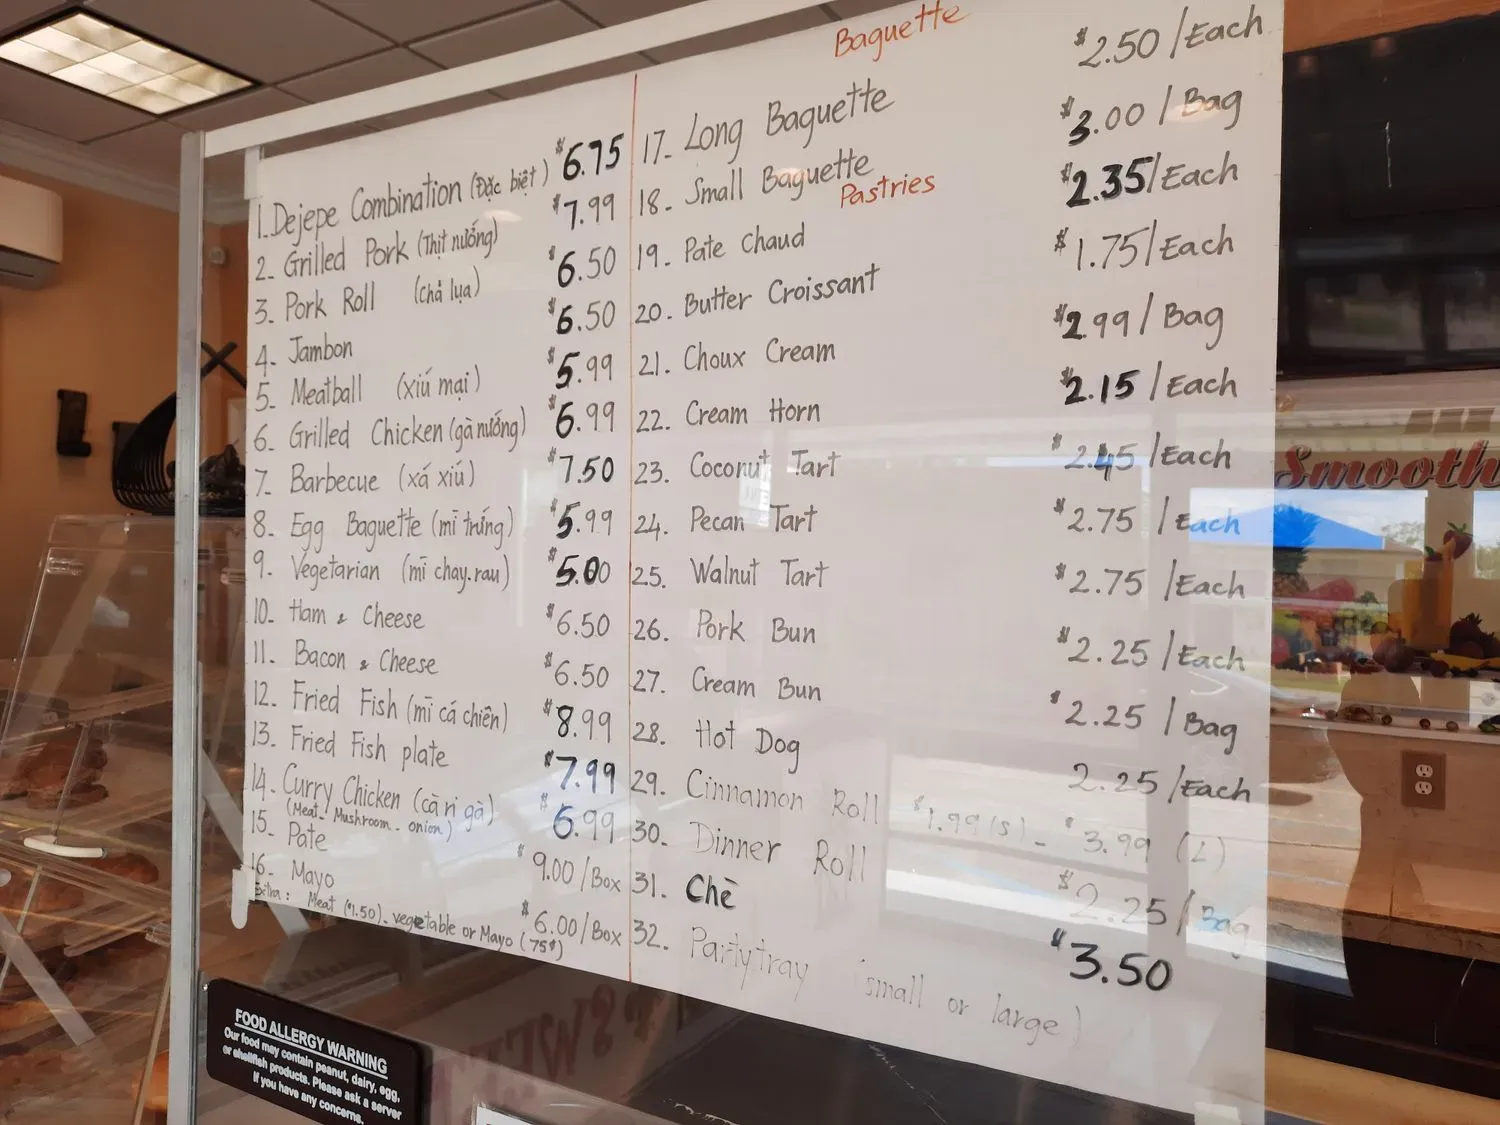 1_ Dejepe Combination (Đặc biệt) $6.75
2_ Grilled Pork (Thịt nướng) $7.99
3_ Pork Roll (chả lụa) $6.50
4_ Jambon $6.50
5_ Meatball (xiú mại) $5.99
6_ Grilled Chicken (gà nướng) $6.99
7_ Barbecue (xá xiú) $7.50
8_ Egg Baguette (mì trứng) $5.99
9_ Vegetarian (mì chay.rau) $5.00
10_ Ham & Cheese $6.50
11_ Bacon & Cheese $6.50
12_ Fried Fish (mì cá chiên) $8.99
13_ Fried Fish plate $7.99
14_ Curry Chicken (cà ri gà) $6.99
(Meat_ Mushroom_ onion)
15_ Pate $9.00/Box
16_ Mayo $6.00/Box
Extra: Meat ($1.50)_ vegetable or Mayo (.75¢)
Baguette
17_ Long Baguette $2.50/Each
18_ Small Baguette $3.00/Bag
Pastries
19_ Pate Chaud $2.35/Each
20. Butter Croissant $1.75/Each
21. Choux Cream $2.99/Bag
22. Cream Horn $2.15/Each
23. Coconut Tart $2.45/Each
24. Pecan Tart $2.75/Each
25. Walnut Tart $2.75/Each
26. Pork Bun $2.25/Each
27. Cream Bun $2.25/Bag
28. Hot Dog 2.25/Each
29. Cinnamon Roll $1.99(S)_ $3.99(L)
30. Dinner Roll $2.25/Bag
31. Chè $3.50
32. Partytray (small or large)
Smooth
FOOD ALLERGY WARNING
Our food may contain peanut, dairy, egg,
or shellfish products. Please ask a server
if you have any concerns.